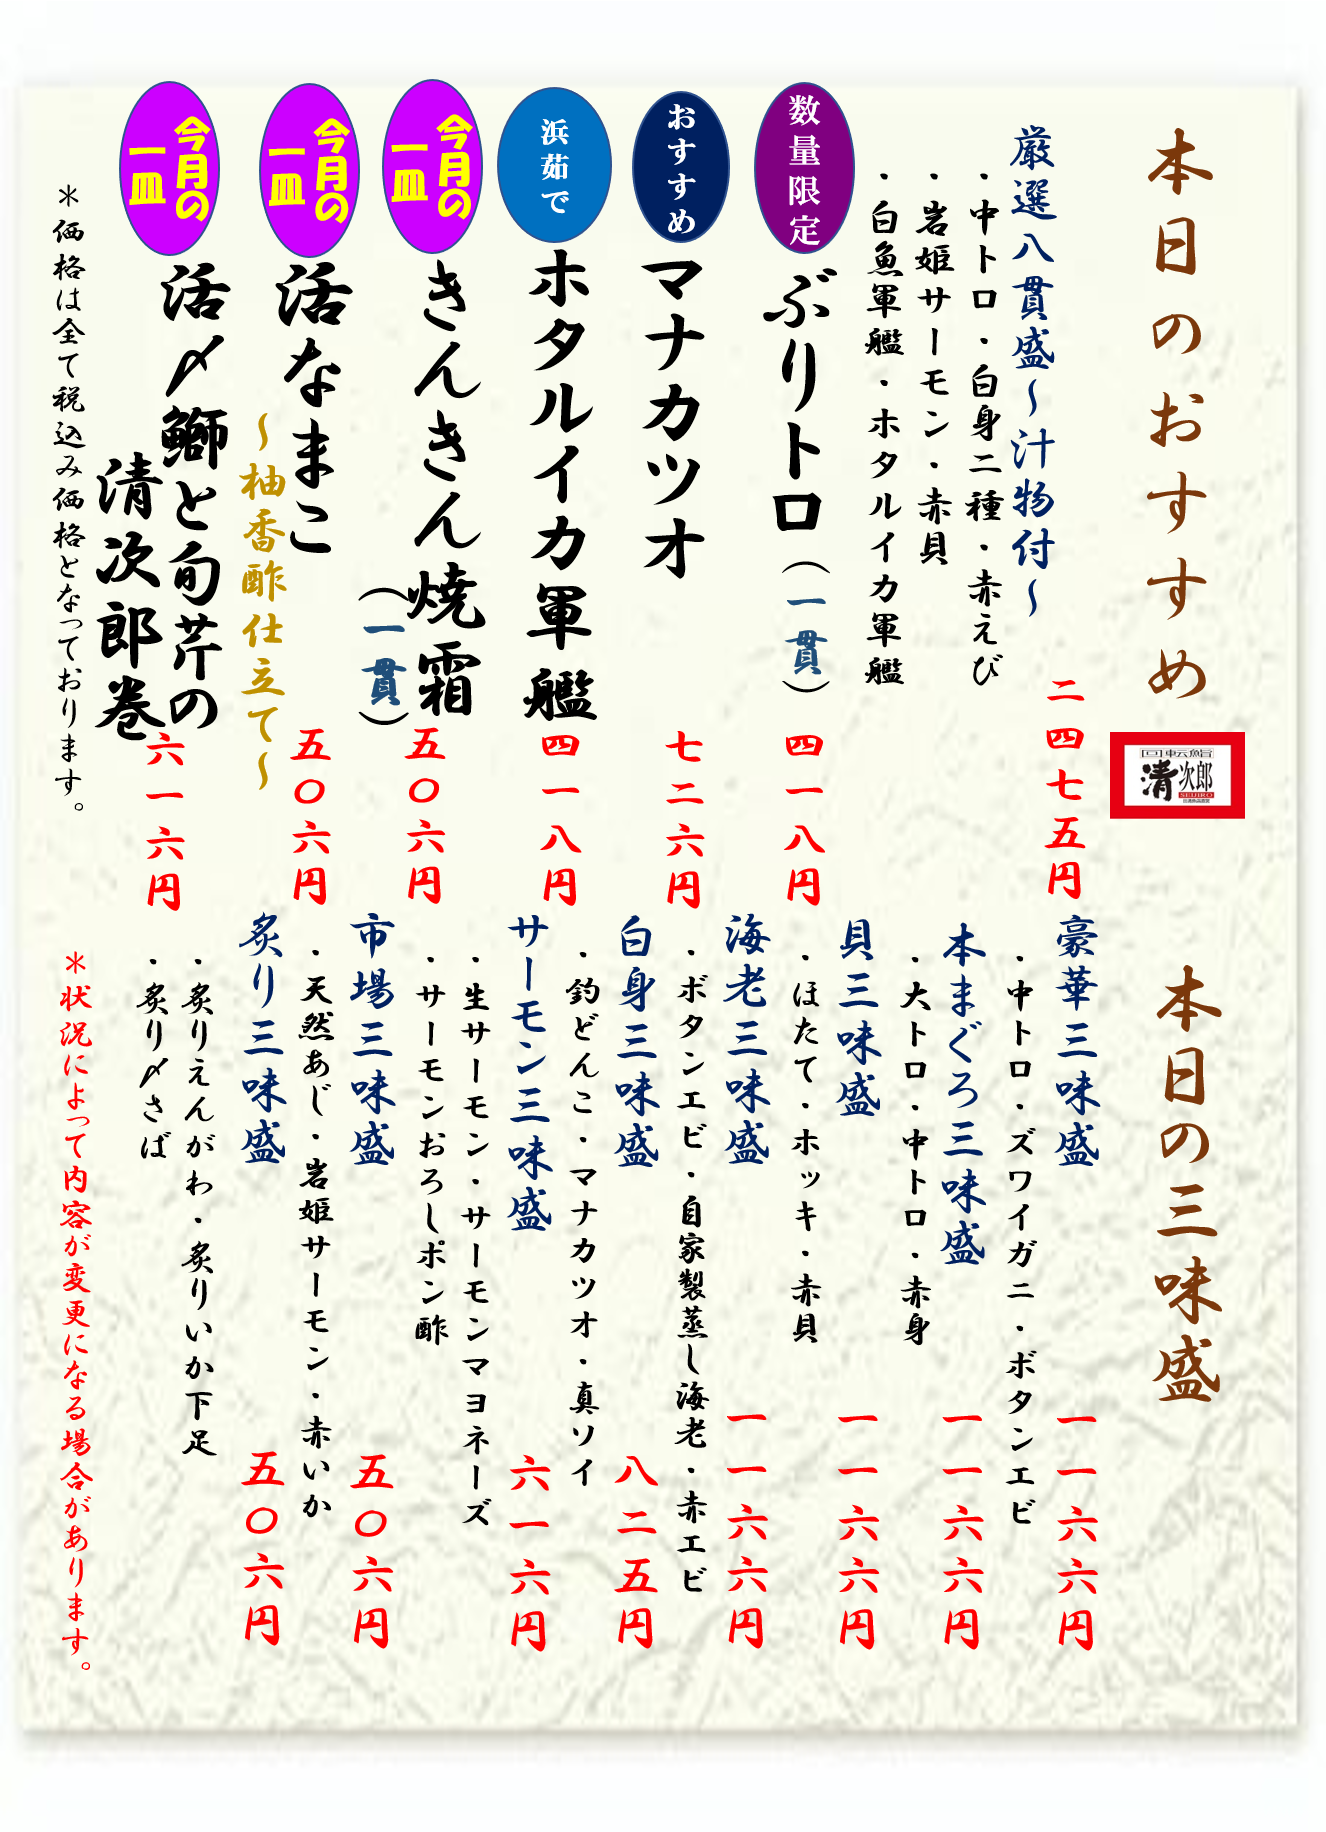 本日のおすすめ
厳選八貫盛～汁物付～
二四七五円
・中トロ・白身二種・赤えび
・岩姫サーモン・赤貝
・白魚軍艦・ホタルイカ軍艦
数量限定
ぶりトロ（一貫）
四一八円
おすすめ
マナカツオ
七二六円
浜茹で
ホタルイカ軍艦
四一八円
今月の
一皿
きんきん焼霜
（一貫）
五〇六円
今月の
一皿
活なまこ
～柚香酢仕立て～
五〇六円
今月の
一皿
活〆鰤と旬芹の
清次郎巻
六一六円
＊価格は全て税込み価格となっております。
回転鮨
清次郎
SEIJIRO
本日の三味盛
豪華三味盛
一一六六円
・中トロ・ズワイガニ・ボタンエビ
本まぐろ三味盛
一一六六円
・大トロ・中トロ・赤身
貝三味盛
一一六六円
・ほたて・ホッキ・赤貝
海老三味盛
一一六六円
・ボタンエビ・自家製蒸し海老・赤エビ
白身三味盛
八二五円
・釣どんこ・マナカツオ・真ソイ
サーモン三味盛
六一六円
・生サーモン・サーモンマヨネーズ
・サーモンおろしポン酢
市場三味盛
五〇六円
・天然あじ・岩姫サーモン・赤いか
炙り三味盛
五〇六円
・炙りえんがわ・炙りいか下足
・炙り〆さば
＊状況によって内容が変更になる場合があります。